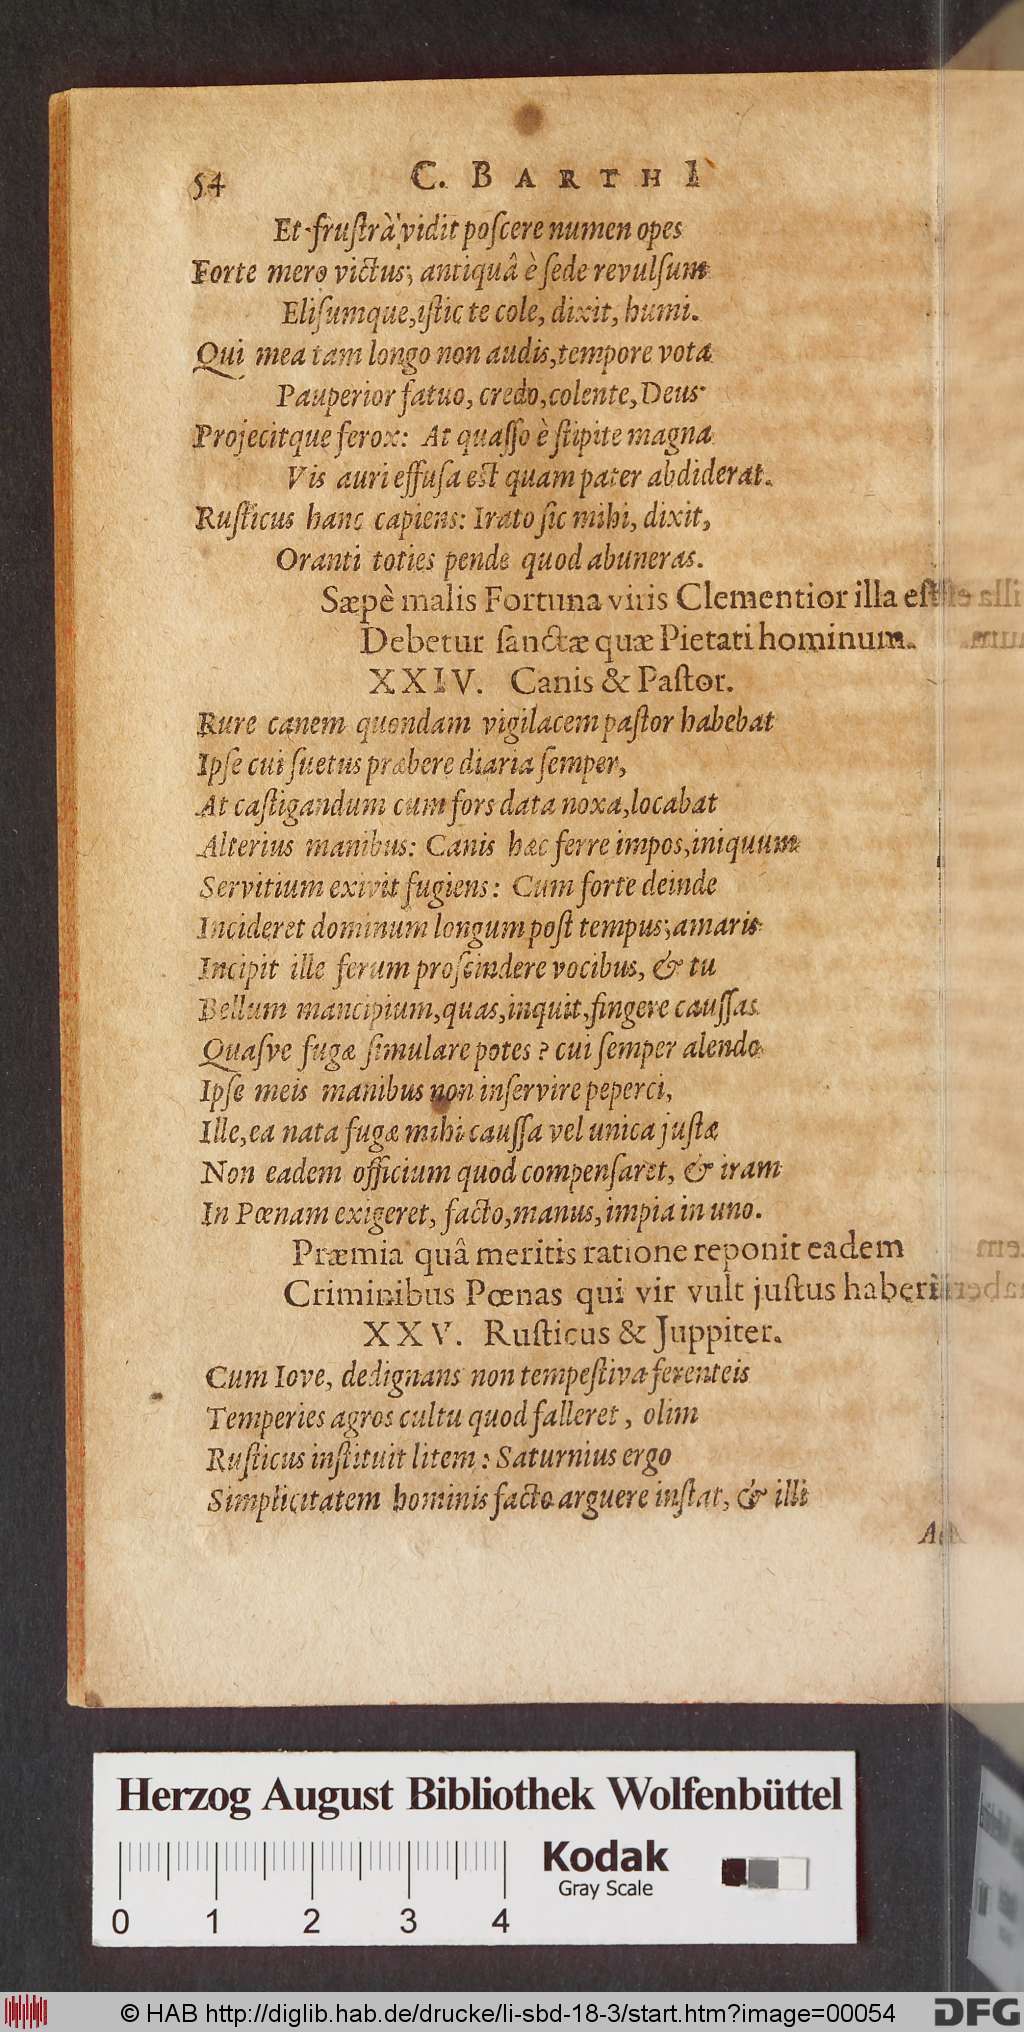 54 C. BARTHI
Et frustrà vidit poscere numen opes
Forte mero victus; antiquâ è sede revulsum
Elisumque, istic te cole, dixit, humi.
Qui mea tam longo non audis, tempore vota
Pauperior fatuo, credo, colente, Deus
Projecitque ferox: At quasso è stipite magna
Vis auri effusa est quam pater abdiderat.
Rusticus hanc capiens: Irato sic mihi, dixit,
Oranti toties pende quod abnueras.
Sæpè malis Fortuna viris Clementior illa est
Debetur sanctæ quæ Pietati hominum.
XXIV. Canis & Pastor.
Rure canem quondam vigilacem pastor habebat
Ipse cui suetus præbere diaria semper,
At castigandum cum fors data noxa, locabat
Alterius manibus: Canis hæc ferre impos, iniquum
Servitium exivit fugiens: Cum forte deinde
Incideret dominum longum post tempus; amaris
Incipit ille ferum proscindere vocibus, & tu
Bellum mancipium, quas, inquit, fingere caussas
Quasve fugæ simulare potes? cui semper alendo
Ipse meis manibus non inservire peperci,
Ille, ea nata fugæ mihi caussa vel unica justæ
Non eadem officium quod compensaret, & iram
In Pœnam exigeret, facto, manus, impia in uno.
Præmia quâ meritis ratione reponit eadem
Criminibus Pœnas qui vir vult justus haberi
XXV. Rusticus & Juppiter.
Cum Iove, dedignans non tempestiva ferenteis
Temperies agros cultu quod falleret, olim
Rusticus instituit litem: Saturnius ergo
Simplicitatem hominis facto arguere instat, & illi
Herzog August Bibliothek Wolfenbüttel
Kodak
Gray Scale
0 1 2 3 4
© HAB http://diglib.hab.de/drucke/li-sbd-18-3/start.htm?image=00054
DFG